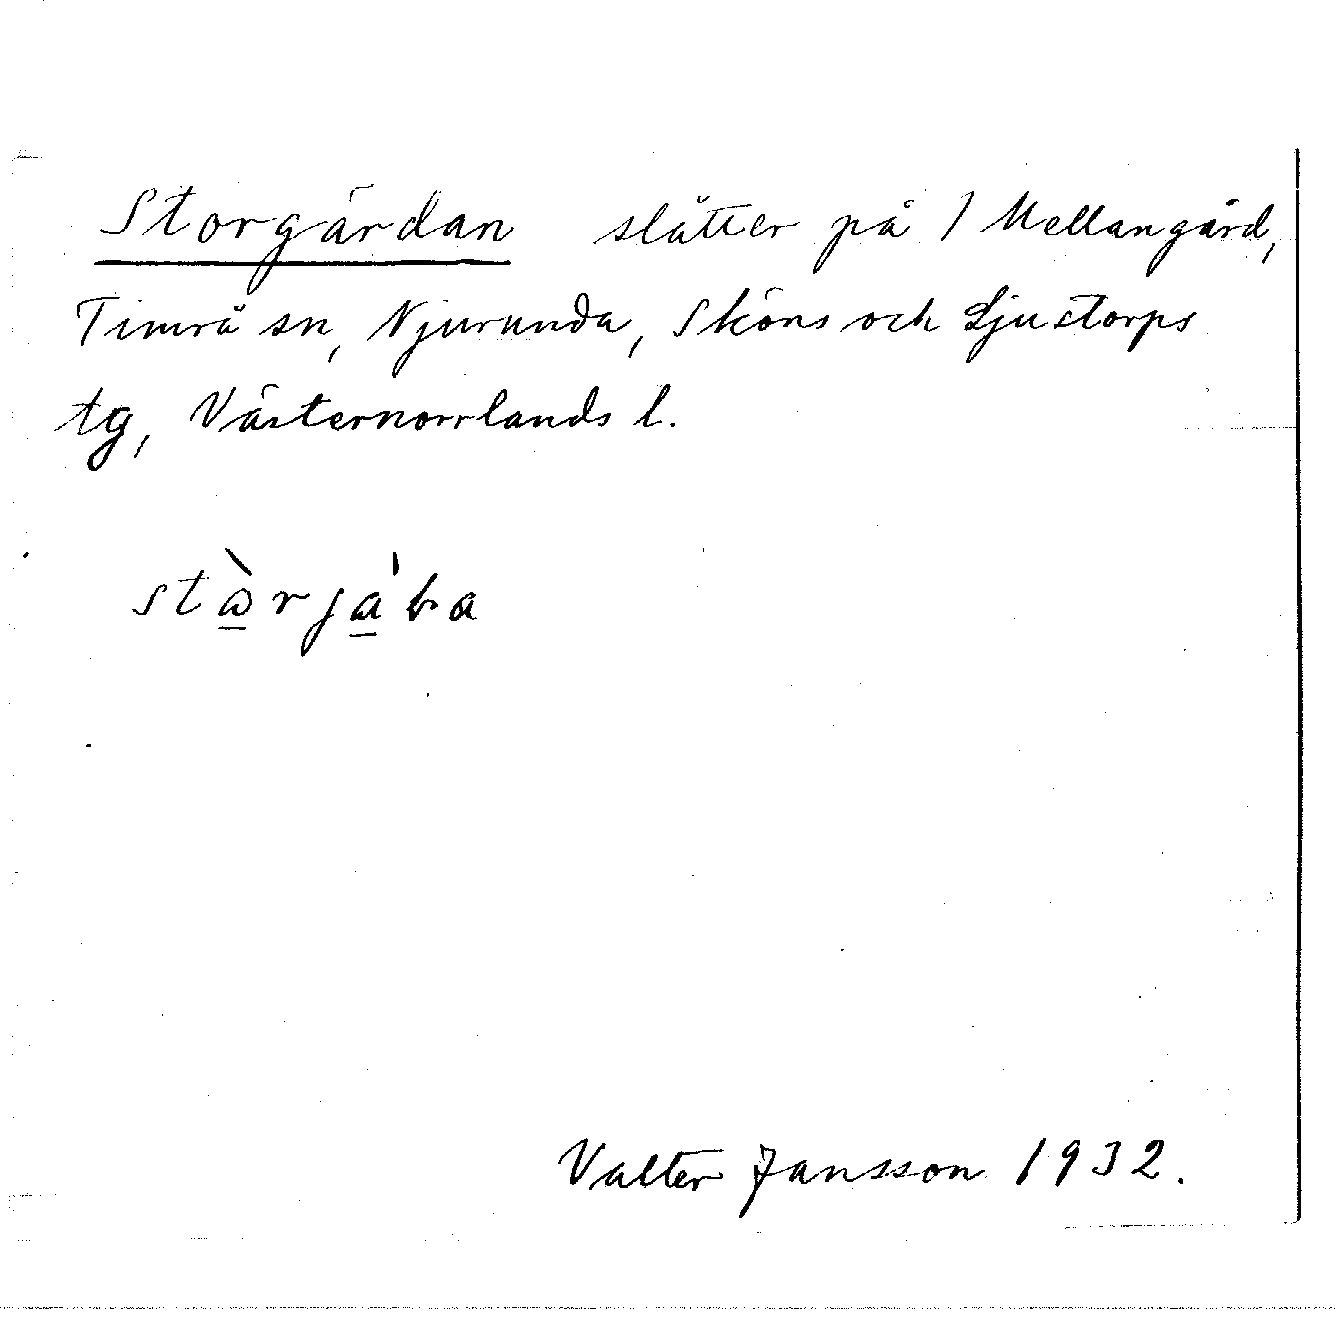 Storgärdan slåtter på 1 Mellangård,
Timrå sn, Njurunda, Sköns och Ljustorps
tg, Västernorrlands l.
Valter Jansson 1932.